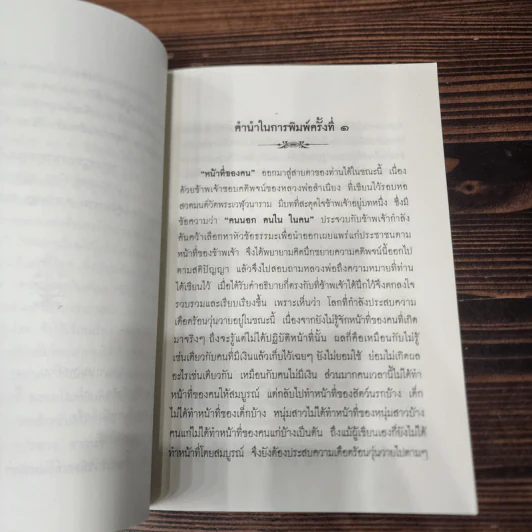 คำนำในการพิมพ์ครั้งที่ ๑
"หน้าที่ของคน" ออกมาสู่สายตาของท่านได้ในขณะนี้ เนื่อง
ด้วยข้าพเจ้าชอบคติพจน์ของหลวงพ่อสำเนียง ที่เขียนไว้รอบหอ
สวดมนต์วัดพระเวฬุวนาราม มีบทที่สะดุดใจข้าพเจ้าอยู่บทหนึ่ง ซึ่งมี
ข้อความว่า "คนนอก คนใน ในคน" ประจวบกับข้าพเจ้ากำลัง
ค้นคว้าเลือกหาหัวข้อธรรมะเพื่อนำออกเผยแพร่แก่ประชาชนตาม
หน้าที่ของข้าพเจ้า จึงได้พยายามคิดนึกขยายความคติพจน์นี้ออกไป
ตามสติปัญญา แล้วจึงไปสอบถามหลวงพ่อถึงความหมายที่ท่าน
ได้เขียนไว้ เมื่อได้รับคำอธิบายที่ตรงกับที่ข้าพเจ้าได้นึกไว้จึงตกลงใจ
รวบรวมและเรียบเรียงขึ้น เพราะเห็นว่า โลกที่กำลังประสบความ
เดือดร้อนวุ่นวายอยู่ในขณะนี้ เนื่องจากยังไม่รู้จักหน้าที่ของคนที่เกิด
มาจริงๆ ถึงจะรู้แต่ไม่ได้ปฏิบัติหน้าที่นั้น ผลก็คือเหมือนกับไม่รู้
เช่นเดียวกับคนที่มีเงินแล้วเก็บไว้เฉยๆ ยังไม่ยอมใช้ ย่อมไม่เกิดผล
อะไรเช่นเดียวกัน เหมือนกับคนไม่มีเงิน ส่วนมากคนเวลานี้ไม่ได้ทำ
หน้าที่ของคนให้สมบูรณ์ แต่กลับไปทำหน้าที่ของสัตว์นรกบ้าง เด็ก
ไม่ได้ทำหน้าที่ของเด็กบ้าง หนุ่มสาวไม่ได้ทำหน้าที่ของหนุ่มสาวบ้าง
คนแก่ไม่ได้ทำหน้าที่ของคนแก่บ้างเป็นต้น ถึงแม้ผู้เขียนเองก็ยังไม่ได้
ทำหน้าที่โดยสมบูรณ์ จึงยังต้องประสบความเดือดร้อนวุ่นวายไปตามๆ